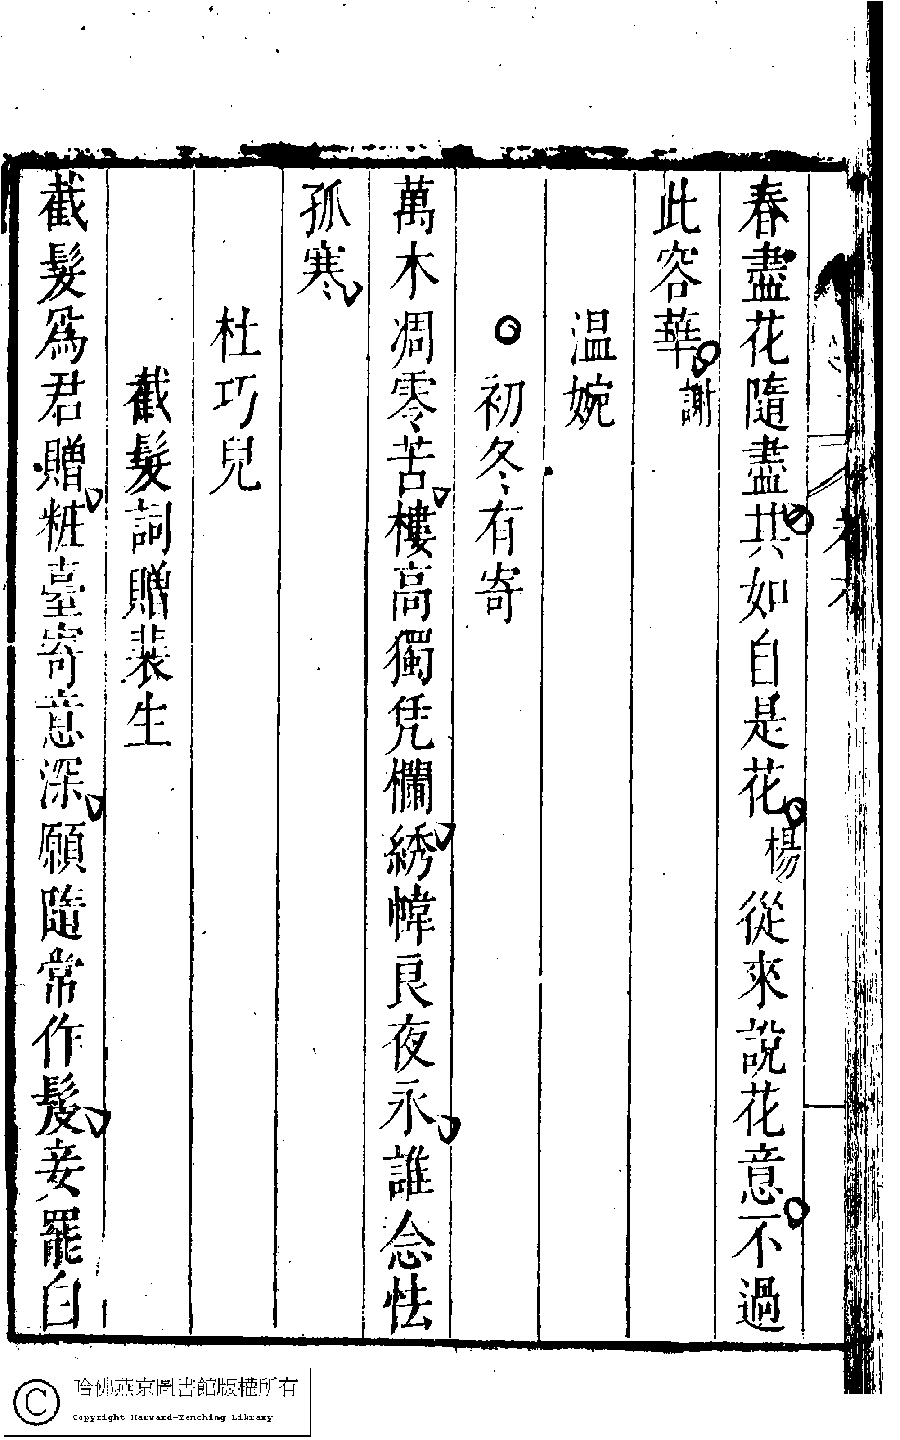 春盡花隨盡共如自是花楊從來說花意不過
此容華謝
温婉
初冬有寄
萬木凋零苦樓高獨凭欄綉幃良夜永誰念怯
孤寒
杜巧兒
截髮詞贈裴生
截髮爲君贈粧臺寄意深願隨常作髲妾罷白
哈佛燕京圖書館版權所有
Copyright Harvard-Yenching Library